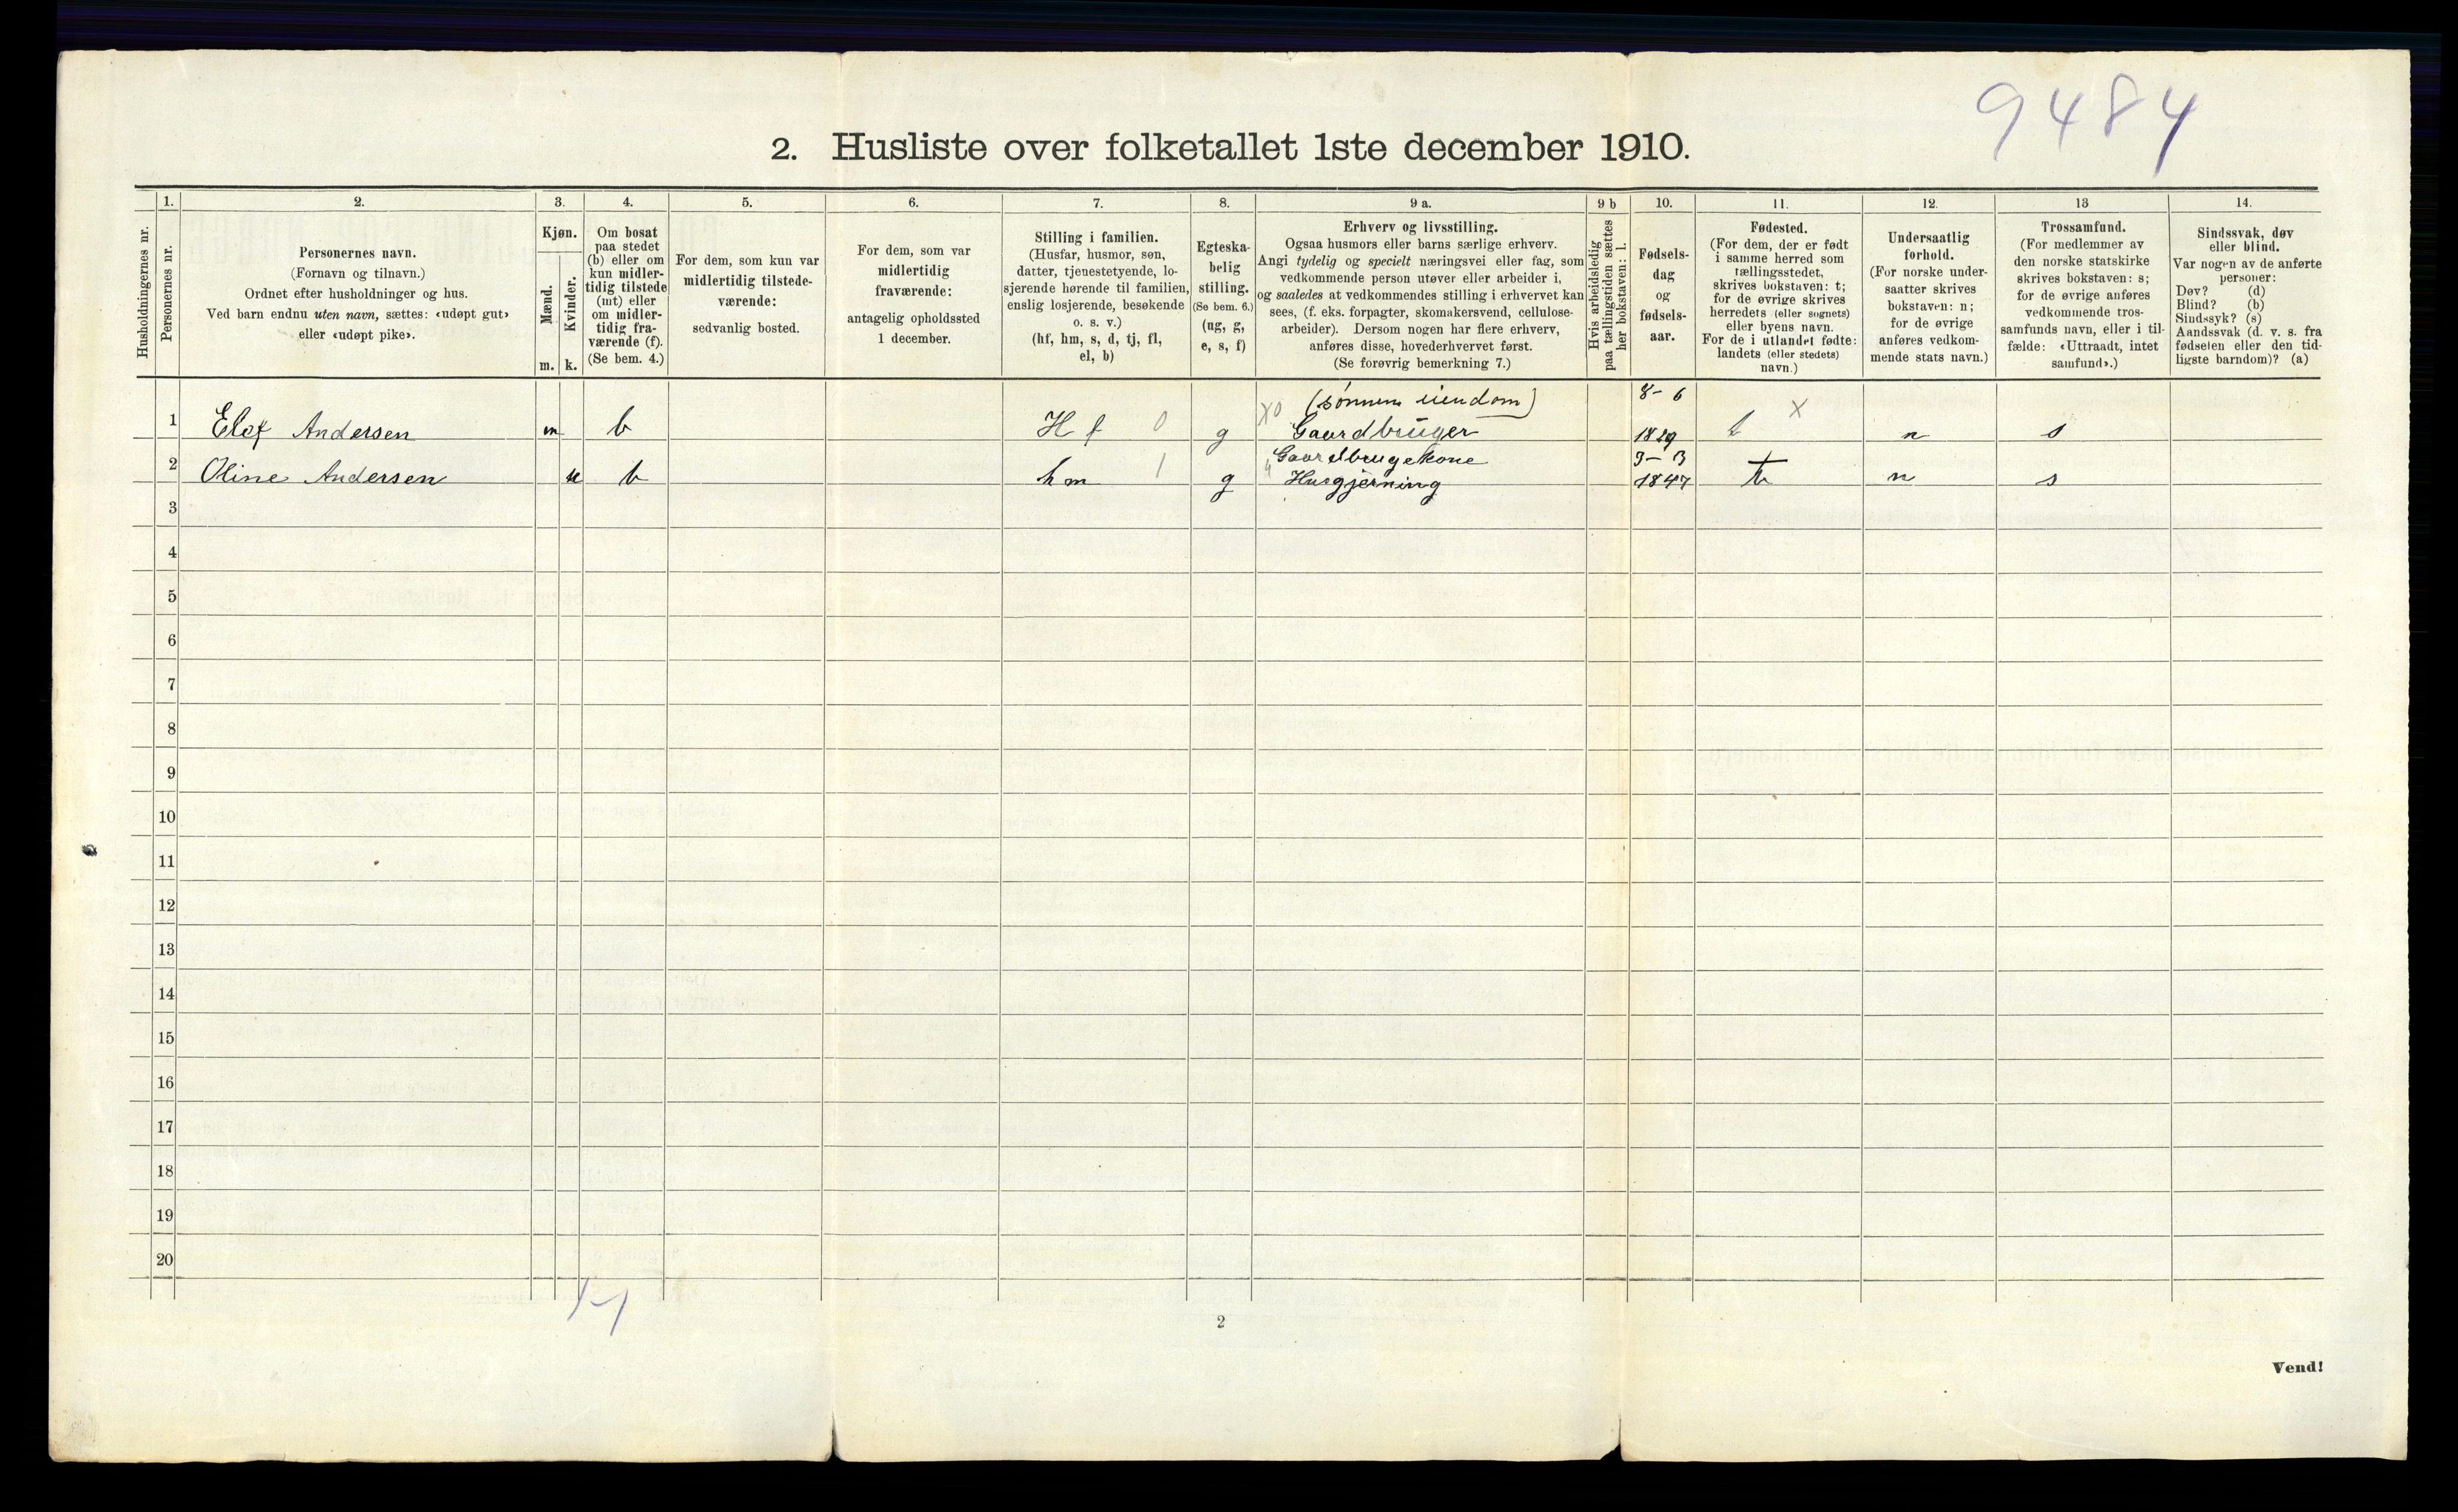 9484
2. Husliste over folketallet 1ste december 1910.
Husholdningernes nr.
1.
Personernes nr.
2.
Personernes navn.
(Fornavn og tilnavn.)
Ordnet efter husholdninger og hus.
Ved barn endnu uten navn, sættes: «udøpt gut»
eller «udøpt pike».
3.
Kjøn.
Mænd.
m.
Kvinder.
k.
4.
Om bosat
paa stedet
(b) eller om
kun midler-
tidig tilstede
(mt) eller
om midler-
tidig fra-
værende (f).
(Se bem. 4.)
5.
For dem, som kun var
midlertidig tilstede-
værende:
sedvanlig bosted.
6.
For dem, som var
midlertidig
fraværende:
antagelig opholdssted
1 december.
7.
Stilling i familien.
(Husfar, husmor, søn,
datter, tjenestetyende, lo-
sjerende hørende til familien,
enslig losjerende, besøkende
o. s. v.)
(hf, hm, s, d, tj, fl,
el, b)
8.
Egteska-
belig
stilling.
(Se bem. 6.)
(ug, g,
e, s, f)
9 a.
Erhverv og livsstilling.
Ogsaa husmors eller barns særlige erhverv.
Angi tydelig og specielt næringsvei eller fag, som
vedkommende person utøver eller arbeider i,
og saaledes at vedkommendes stilling i erhvervet kan
sees, (f. eks. forpagter, skomakersvend, cellulose-
arbeider). Dersom nogen har flere erhverv,
anføres disse, hovederhvervet først.
(Se forøvrig bemerkning 7.)
9 b
Hvis arbeidsledig
paa tællingstiden sættes
her bokstaven: l.
10.
Fødsels-
dag
og
fødsels-
aar.
11.
Fødested.
(For dem, der er født
i samme herred som
tællingsstedet,
skrives bokstaven: t;
for de øvrige skrives
herredets (eller sognets)
eller byens navn.
For de i utlandet fødte:
landets (eller stedets)
navn.)
12.
Undersaatlig
forhold.
(For norske under-
saatter skrives
bokstaven: n;
for de øvrige
anføres vedkom-
mende stats navn.)
13
Trossamfund.
(For medlemmer av
den norske statskirke
skrives bokstaven: s;
for de øvrige anføres
vedkommende tros-
samfunds navn, eller i til-
fælde: «Uttraadt, intet
samfund».)
14.
Sindssvak, døv
eller blind.
Var nogen av de anførte
personer:
Døv? (d)
Blind? (b)
Sindssyk? (s)
Aandssvak (d. v. s. fra
fødselen eller den tid-
ligste barndom)? (a)
(sønnens eiendom) 8-6
1 Elef Andersen m b Hf 0 g X0 Gaardbruger 1829 t X n s
Gaardbrugerkone 9-3
2 Oline Andersen k b hm 1 g Husgjerning 1847 t n s
3
4
5
6
7
8
9
10
11
12
13
14
15
16
17
18
19
20
1-1
2
Vend!